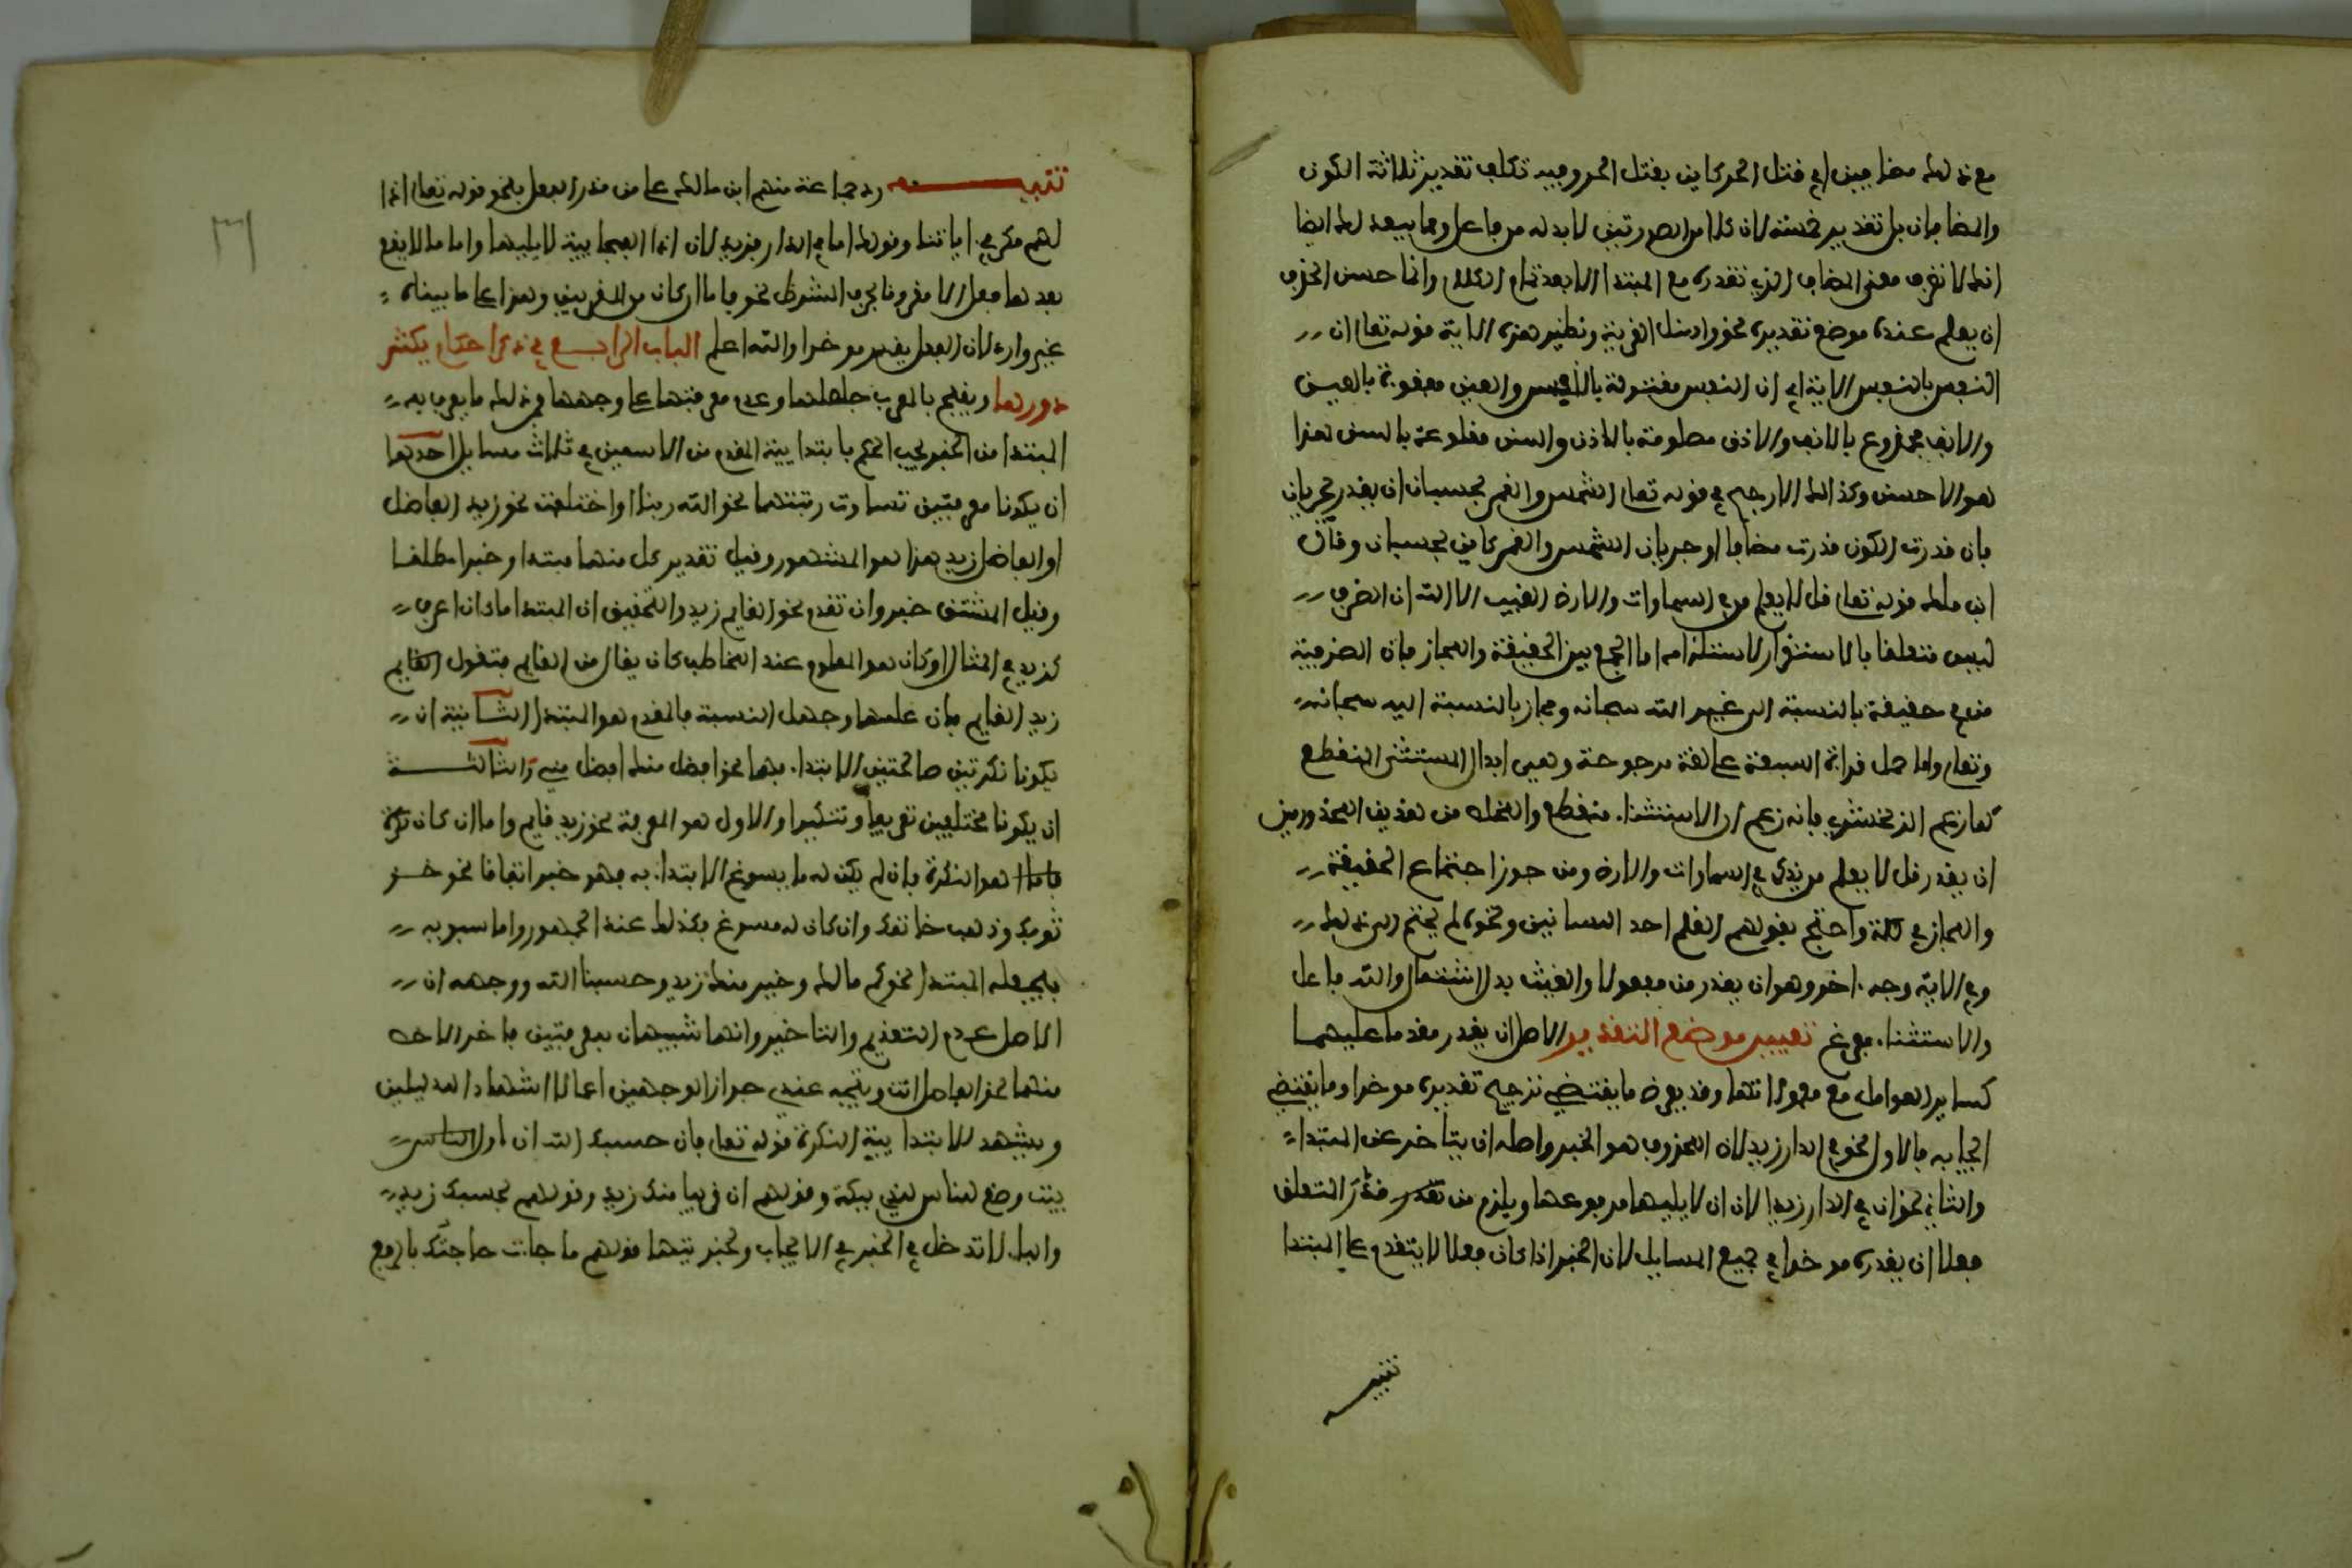 مع ذلك مضافين اي قتل الحر كاين بقتل الحر وفيه تكلف تقدير ثلاثة الكون
والمضافان بل تقدير خمسة لان كلا من المصدرتين لابد له من فاعل ومما يبعد لك ايضا
انك لا تعرف معنى المضاف الذي تقدره مع المبتدا الا بعد تمام الكلام وانما حسن الحذف
ان يعلم عنده موضع تقديره نحو واسئل القرية ونظير هذه الاية قوله تعالى ان
النفس بالنفس الاية اي ان النفس مقتولة بالنفس والعين مفقوءة بالعين
والانف مجدوع بالانف والاذن مصلومة بالاذن والسن مقلوعة بالسن هذا
هو الاحسن وكذالك الارجح في قوله تعالى الشمس والقمر بحسبان ان يقدر يجريان
فان قدرت الكون قدرت مضافا اي جريان الشمس والقمر كاين بحسبان وقال
ابن ملك قوله تعالى قل لا يعلم من في السماوات والارض الغيب الا الله ان الظرف
ليس متعلقا بالاستقرار لاستلزامه اما الجمع بين الحقيقة والمجاز فان الظرفية
من في حقيقة بالنسبة الى غير الله سبحانه ومجاز بالنسبة اليه سبحانه
وتعالى واما حمل قراءة السبعة على لغة مرجوحة وهي ابدال المستثنى المنقطع
كما زعم الزمخشري فانه زعم ان الاستثناء منقطع والمخلص من هذين المحذورين
ان يقدر قل لا يعلم من يذكر في السماوات والارض ومن جوز اجتماع الحقيقة
والمجاز في كلمة واحتج بقولهم القلم احد اللسانين ونحوه لم يحتج الى ذلك
وفي الاية وجه اخر وهو ان يقدر من مفعولا والغيب بدل اشتمال والله فاعل
والاستثناء مفرغ تعيين موضع التقدير الاصل ان يقدر مقدما عليهما
كساير العوامل مع معمولاتها وقد يعرض ما يقتضي ترجيح تقديره موخرا وما يقتضي
ايجابه فالاول نحو في الدار زيد لان المحذوف هو الخبر واصله ان يتاخر عن المبتدا
والثاني نحو ان في الدار زيدا لان ان لا يليها مرفوعها ويلزم من قدر المتعلق
فعلا ان يقدره موخرا في جميع المسايل لان الخبر اذا كان فعلا لا يتقدم على المبتدا
تنبيه
تنبيه رد جماعة منهم ابن مالك على من قدر الفعل بنحو قوله تعالى اذا
لهم مكر في اياتنا وقولك اما في الدار فزيد لان اذا الفجايية لا يليها واما ما لا يقع
بعدها فعل الا مقرونا بحرف الشرط نحو فاما ان كان من المقربين وهذا على ما بيناه
غير وارد لان الفعل يقدر موخرا والله اعلم الباب الرابع في ذكر احكام يكثر
دورها ويقبح بالمعرب جهلها وعدم معرفتها على وجهها فمن ذلك ما يعرف به
المبتدا من الخبر يجب الحكم بابتدايية المقدم من الاسمين في ثلاث مسايل احدها
ان يكونا معرفتين تساوت رتبتهما نحو الله ربنا او اختلفت نحو زيد الفاضل
او الفاضل زيد هذا هو المشهور وقيل تقدير كل منهما مبتدا وخبرا مطلقا
وقيل المشتق خبر وان تقدم نحو القايم زيد والتحقيق ان المبتدا ما كان اعرف
كزيد في المثال او كان هو المعلوم عند المخاطب كان يقال من القايم فتقول القايم
زيد القايم فان علمهما وجهل النسبة فالمقدم هو المبتدا الثانية ان
يكونا نكرتين صالحتين للابتدا بهما نحو افضل منك افضل مني والثالثة
ان يكونا مختلفين تعريفا وتنكيرا والاول هو المعرفة نحو زيد قايم واما ان كان نكرة
هو النكرة فان لم يكن له ما يسوغ الابتدا به فهو خبر اتفاقا نحو خز
ثوبك وذهب خاتمك وان كان له مسوغ فكذلك عند الجمهور واما سيبويه
فيجعله المبتدا نحو كم مالك وخير منك زيد وحسبنا الله ووجهه ان
الاصل عدم التقديم والتاخير وانهما شبيهان بمعرفتين تاخر الاخص
منهما نحو الفاضل انت ويتجه عندي جواز الوجهين اعمالا للدليلين
ويشهد لابتدايية النكرة قوله تعالى فان حسبك الله ان اول
بيت وضع للناس للذي ببكة وقولهم ان قريبا منك زيد وقولهم بحسبك زيد
والبا لا تدخل في الخبر في الايجاب ولخبريتها قولهم ما جاءت حاجتك بالرفع